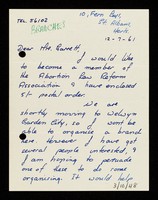 TEL. 56102
BRANCHES
10, Fern Cape,
St. Albans,
Herts.
12-7-61
Dear Mr. Garrett,
I would like
to become a member of
the Abortion Law Reform
Association & have enclosed
5/- postal order.
We are
shortly moving to Welwyn
Garden City, so I won't be
able to organise a branch
here, however I have got
several people interested &
I am hoping to persuade
one of these to do some
organising. It would help